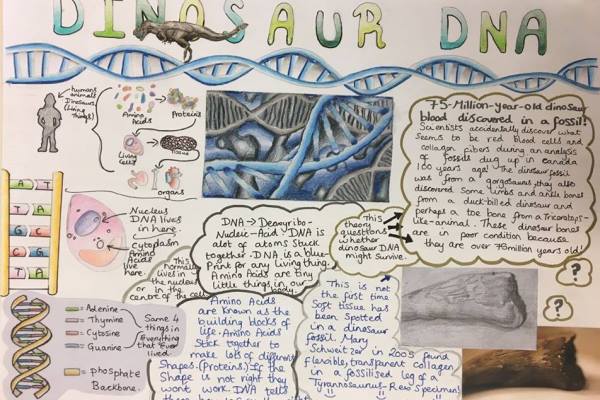 DINOSAUR DNA
humans
animals
Dinosaurs
(Living
Things)
Amino
Acids
Proteins
Living
Cells
Tissue
organs
T A
T A
C G
G C
T A
Nucleus
DNA lives
in here.
Cytoplasm
Amino
Acids
live
here.
DNA → Deoxyribo-
Nucleic-Acid DNA is
alot of atoms stuck
together. DNA is a blue-
Print for any living thing.
Amino Acids are tiny
little things in our
body.
This
normally
lives in
the nucleus
or in the
centre of the cell
This
theory
questions
whether
dinosaur DNA
might survive.
75-Million-year-old dinosaur
blood discovered in a fossil!
Scientists accidentally discover what
seems to be red blood cells and
collagen fibers during an analysis
of fossils dug up in canada
100 years ago! The dinosaur fossil
was from a gorgosaurus they also
discovered some limbs and ankle bones
from a duck-billed dinosaur and
perhaps a toe bone from a Triceratops-
like-animal. These dinosaur bones
are in poor condition because
they are over 75million years old!
?
?
Adenine
Thymine
Cytosine
Guanine
Same 4
things in
Everything
that Ever
lived.
phosphate
Backbone.
Amino Acids
are known as the
building blocks of
life. Amino Acids
Stick together to
make lots of different
Shapes. (Proteins) If the
Shape is not right they
wont work. DNA tells
This is not
the first time
Soft tissue has
been spotted
in a dinosaur
fossil. Mary
Schweitzer in 2005 found
flexible, transparent collagen
in a fossilised leg of a
Tyrannosaurus-Rex Specimen!